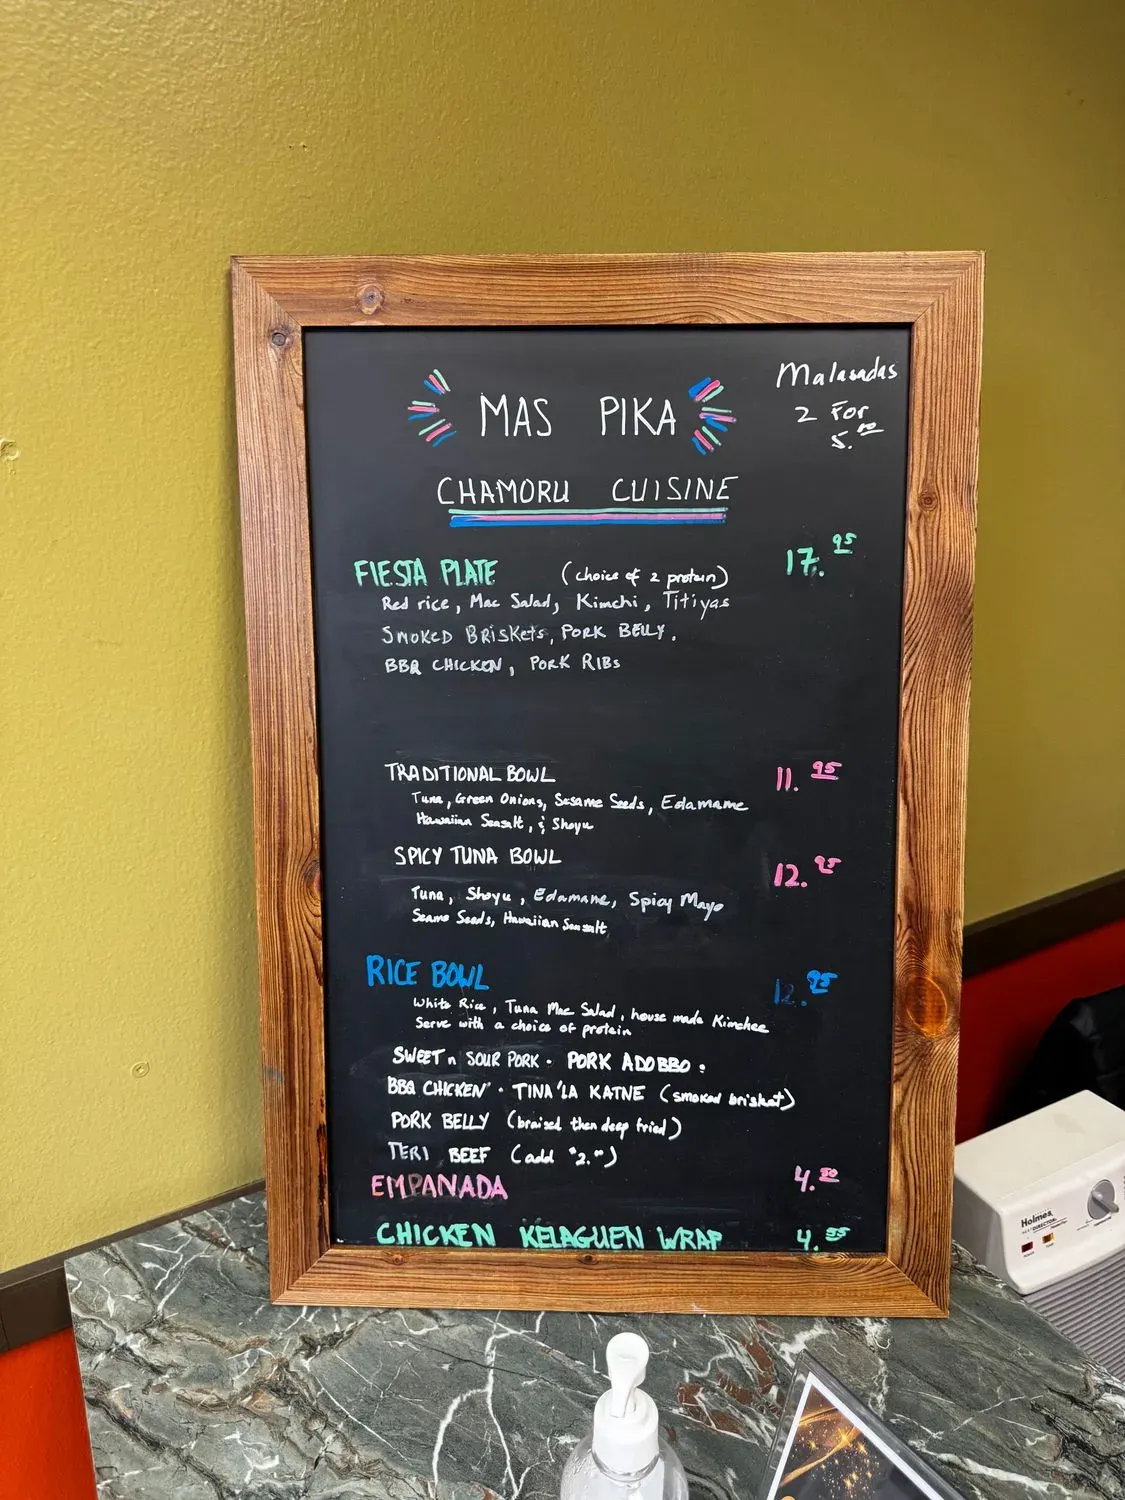 MAS PIKA
CHAMORU CUISINE
Malasadas
2 For
5.00
FIESTA PLATE (choice of 2 protein) 17.95
Red rice, Mac Salad, Kimchi, Titiyas
SMOKED BRISKETS, PORK BELLY.
BBQ CHICKEN, PORK RIBS
TRADITIONAL BOWL 11.95
Tuna, Green Onions, Sesame Seeds, Edamame
Hawaiian Seasalt, & Shoyu
SPICY TUNA BOWL 12.95
Tuna, Shoyu, Edamame, Spicy Mayo
Seame Seeds, Hawaiian Seasalt
RICE BOWL 12.95
White Rice, Tuna Mac Salad, house made Kimchee
Serve with a choice of protein
SWEET n SOUR PORK · PORK ADOBBO.
BBQ CHICKEN · TINA'LA KATNE (smoked brisket)
PORK BELLY (braised then deep fried)
TERI BEEF (add "2.")
EMPANADA 4.50
CHICKEN KELAGUEN WRAP 4.
Holmes